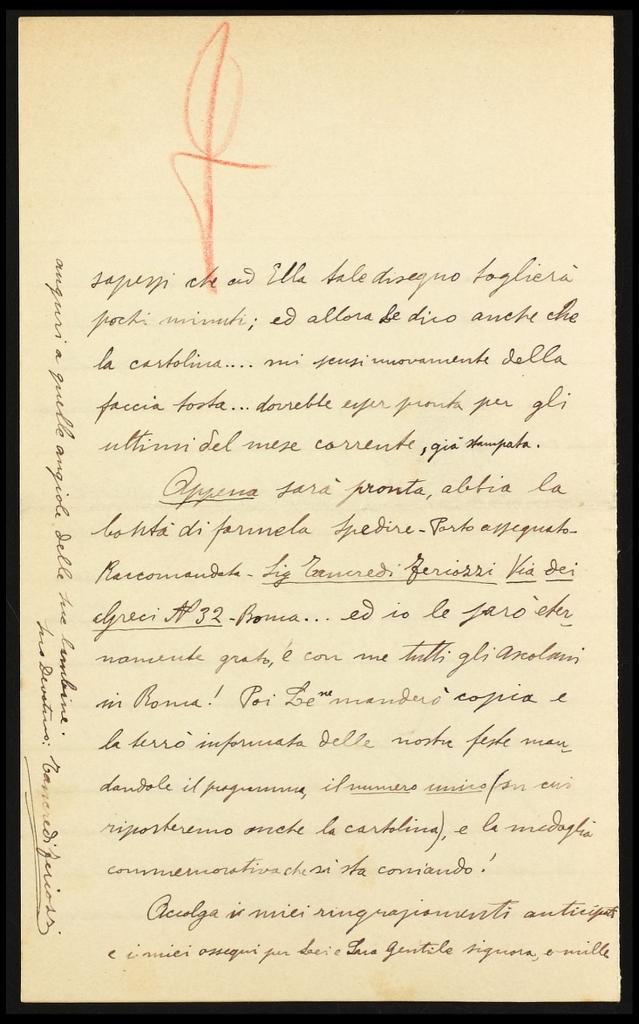 sapessi che ad Ella tale disegno toglierà
pochi minuti; ed allora Le dico anche che
la cartolina.... mi scusi nuovamente della
faccia tosta... dovrebbe esser pronta per gli
ultimi del mese corrente, già stampata.
Appena sarà pronta, abbia la
bontà di farmela spedire - Porto assegnato -
Raccomandata - Sig Tancredi Feriozzi Via dei
Greci N° 32 - Roma... ed io le sarò eter-
namente grato, e con me tutti gli Ascolani
in Roma! Poi Le ne manderò copia e
la terrò informata delle nostre feste man-
dandole il programma, il numero unico (su cui
riporteremo anche la cartolina), e la medaglia
commemorativa che si sta coniando!
Accolga i miei ringraziamenti anticipati
e i miei ossequi per Lei e Sua Gentile signora, e mille
auguri a quelle angiole delle sue bambine.
Suo Devotmo: Tancredi Feriozzi